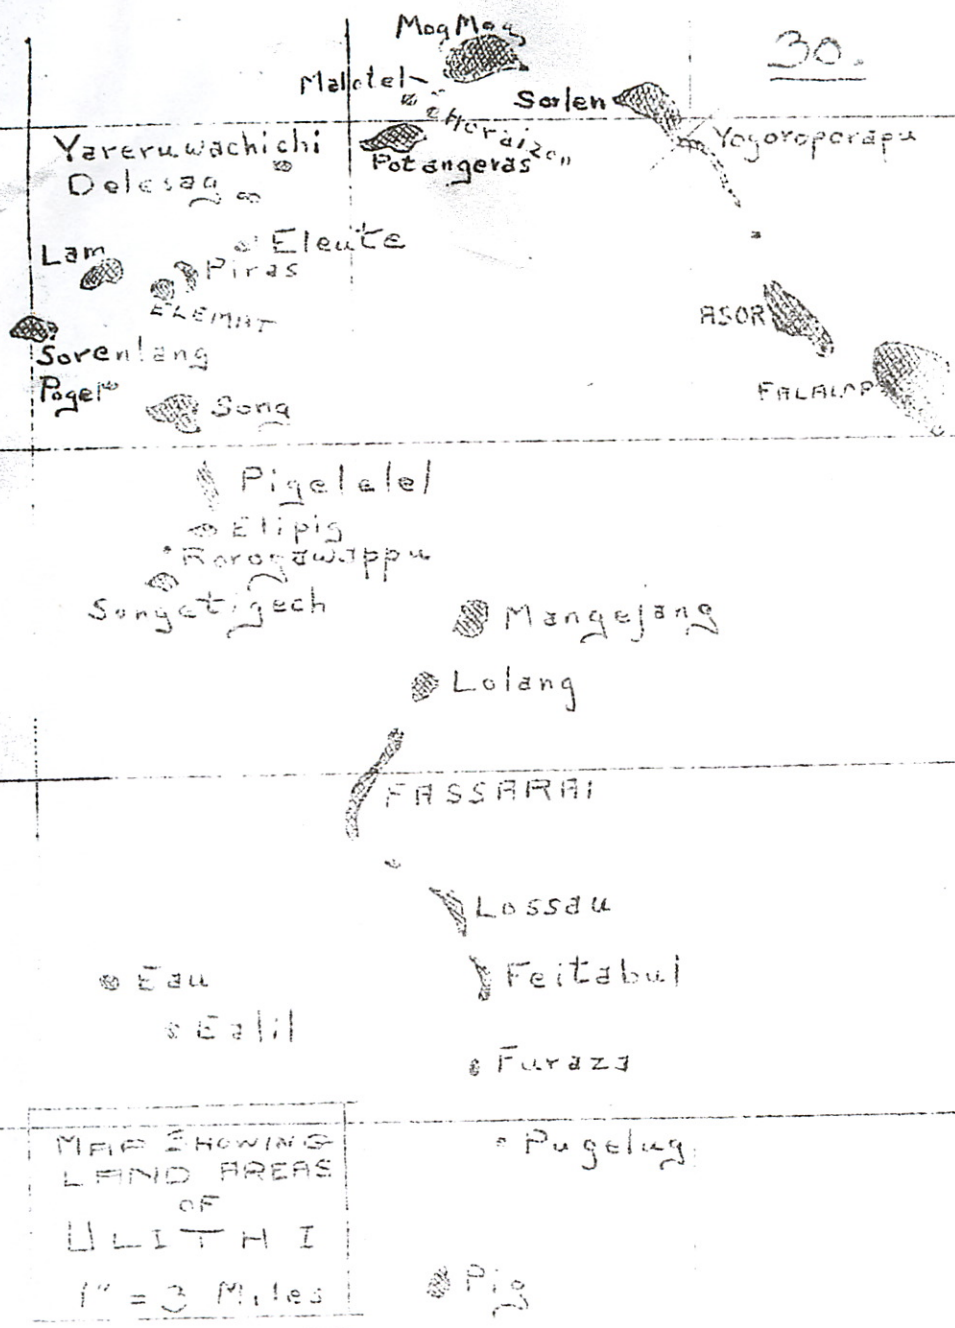 30.
MogMog
Malotel
Sorlen
Horaizon
Yogoroporapu
Potangeras
Yareruwachichi
Delesag
Lam
Eleute
Piras
ELEMAT
ASOR
Sorenlang
FALALAP
Pogel
Song
Pigelelel
Elipig
Rorogawappu
Songetigech
Mangejang
Lolang
FASSARAI
Lossau
Eau
Feitabul
Ealil
Furaza
Pugelug
MAP SHOWING
LAND AREAS
OF
ULITHI
1" = 3 Miles
Pig